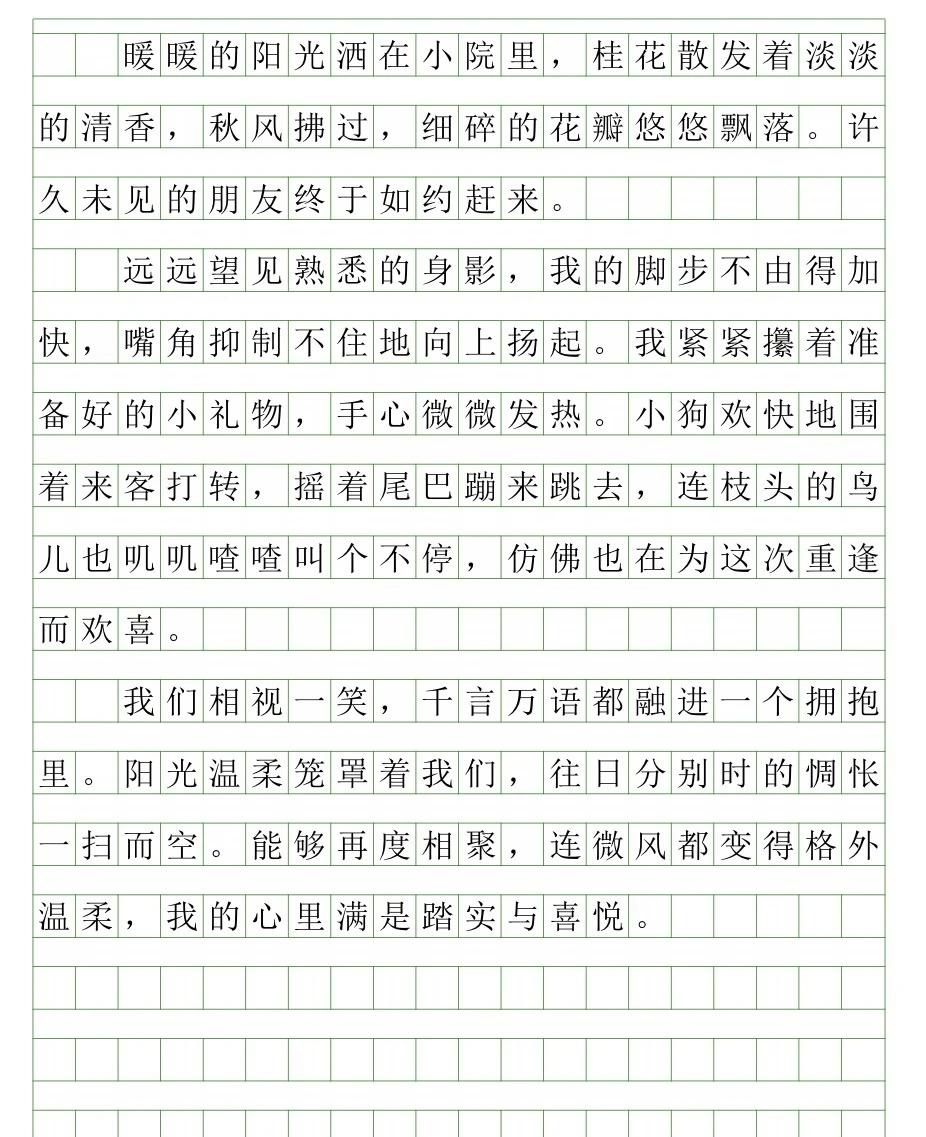 暖暖的阳光洒在小院里，桂花散发着淡淡
的清香，秋风拂过，细碎的花瓣悠悠飘落。许
久未见的朋友终于如约赶来。
远远望见熟悉的身影，我的脚步不由得加
快，嘴角抑制不住地向上扬起。我紧紧攥着准
备好的小礼物，手心微微发热。小狗欢快地围
着来客打转，摇着尾巴蹦来跳去，连枝头的鸟
儿也叽叽喳喳叫个不停，仿佛也在为这次重逢
而欢喜。
我们相视一笑，千言万语都融进一个拥抱
里。阳光温柔笼罩着我们，往日分别时的惆怅
一扫而空。能够再度相聚，连微风都变得格外
温柔，我的心里满是踏实与喜悦。